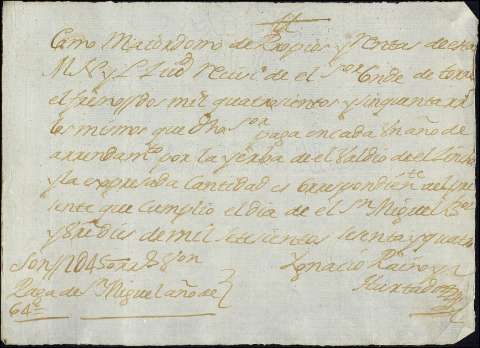 Como Maiordomo de Propios y rentas de esta
M. N. y L. Ciud. recivi de el Sor Conde de torre
el fresno dos mil quatrosientos y sinquenta rr.
los mismos que dho Sor paga en cada un año de
arrendamto por la yerba de el Valdio de el
y la expresada Cantidad es Correspondiente al pre
sente que Cumplio el dia de el Sn Miguel
y de mil setesientos sesenta y quatro
Son 2450 rs Von
Paga de Sn Miguel año de
64
Ygnacio
Hurtado